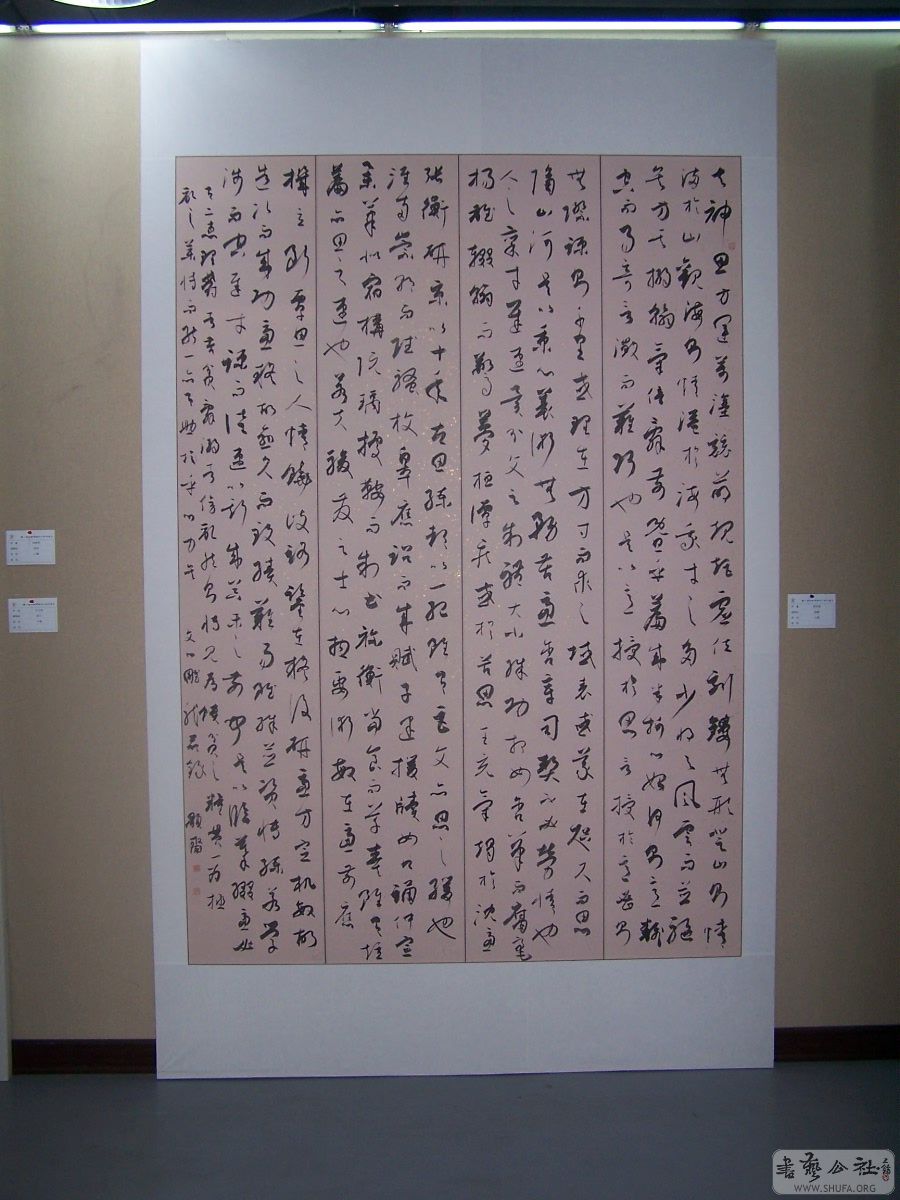 夫神思方運萬塗競萌規矩虛位刻鏤無形登山則情
滿於山觀海則情溢於海我才之多少將與風雲而並驅
矣方其搦翰氣倍辭前暨乎篇成半折心始何則意翻
空而易奇言徵而難巧也是以意授於思言授於意密則
無際疏則千里或理在方寸而求之域表或義在咫尺而思
隔山河是以秉心養術無務苦慮含章司契不必勞情也
人之稟才遲速異分文之制體大小殊功相如含筆而腐毫
揚雄輟翰而驚夢桓譚疾感於苦思王充氣竭於沈慮
張衡研京以十年左思練都以一紀雖有巨文亦思之緩也
淮南崇朝而賦騷枚皋應詔而成賦子建援牘如口誦仲宣
舉筆似宿構阮瑀據鞍而制書禰衡當食而草奏雖有短
篇亦思之速也若夫駿發之士心總要術敏在慮前應
機立斷覃思之人情饒歧路鑒在疑後研慮方定機敏故
造次而成功慮疑故愈久而致績難易雖殊並資博練若學
淺而空遲才疏而徒速以斯成器未之前聞是以臨篇綴慮必
有二患理鬱者苦貧辭溺者傷亂然則博見為饋貧之糧貫一為拯
亂之藥博而能一亦有助於乎心力矣 文心雕龍
書藝公社
WWW.SHUFA.ORG